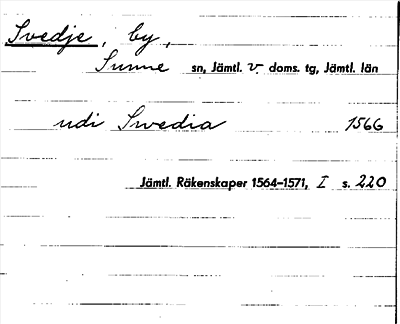 Svedje, by,
Sunne sn, Jämtl. v. doms. tg, Jämtl. län
udi Swedia 1566
Jämtl. Räkenskaper 1564–1571, I s. 220